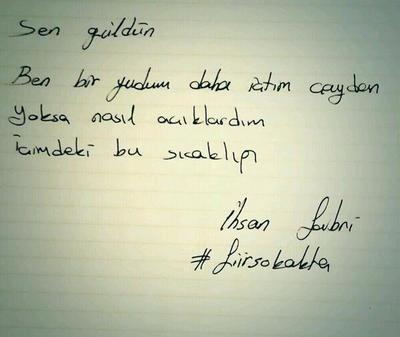 Sen güldün
Ben bir yudum daha içtim çaydan
Yoksa nasıl açıklardım
İçimdeki bu sıcaklığı
İhsan Savbri
#Şiirsokakta